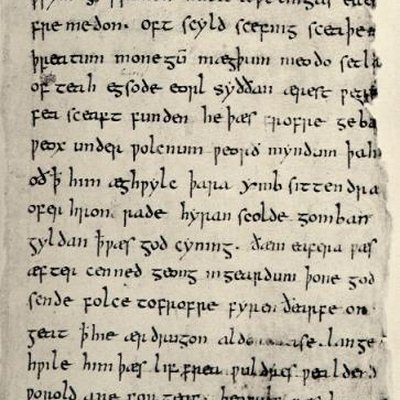 fremedon. oft scyld scefing sceaþe
þreatum monegū mægþum meodo setla
of teah egsode eorl syððan ærest
fea sceaft funden he þæs frofre geba
ƿeox under ƿolcnum ƿeorð myndum þah
oð ꝥ him æghƿylc þara ymb sittendra
ofer hron rade hyran scolde gomban
gyldan ꝥ ƿæs god cyning. ðæm eafera ƿæs
æfter cenned geong in geardum þone god
sende folce tofrofre fyren ðearfe on
geat ꝥ hie ær drugon aldor ase. lange
hƿile him þæs lif frea ƿuldres ƿealdend
ƿorold are for geaf.